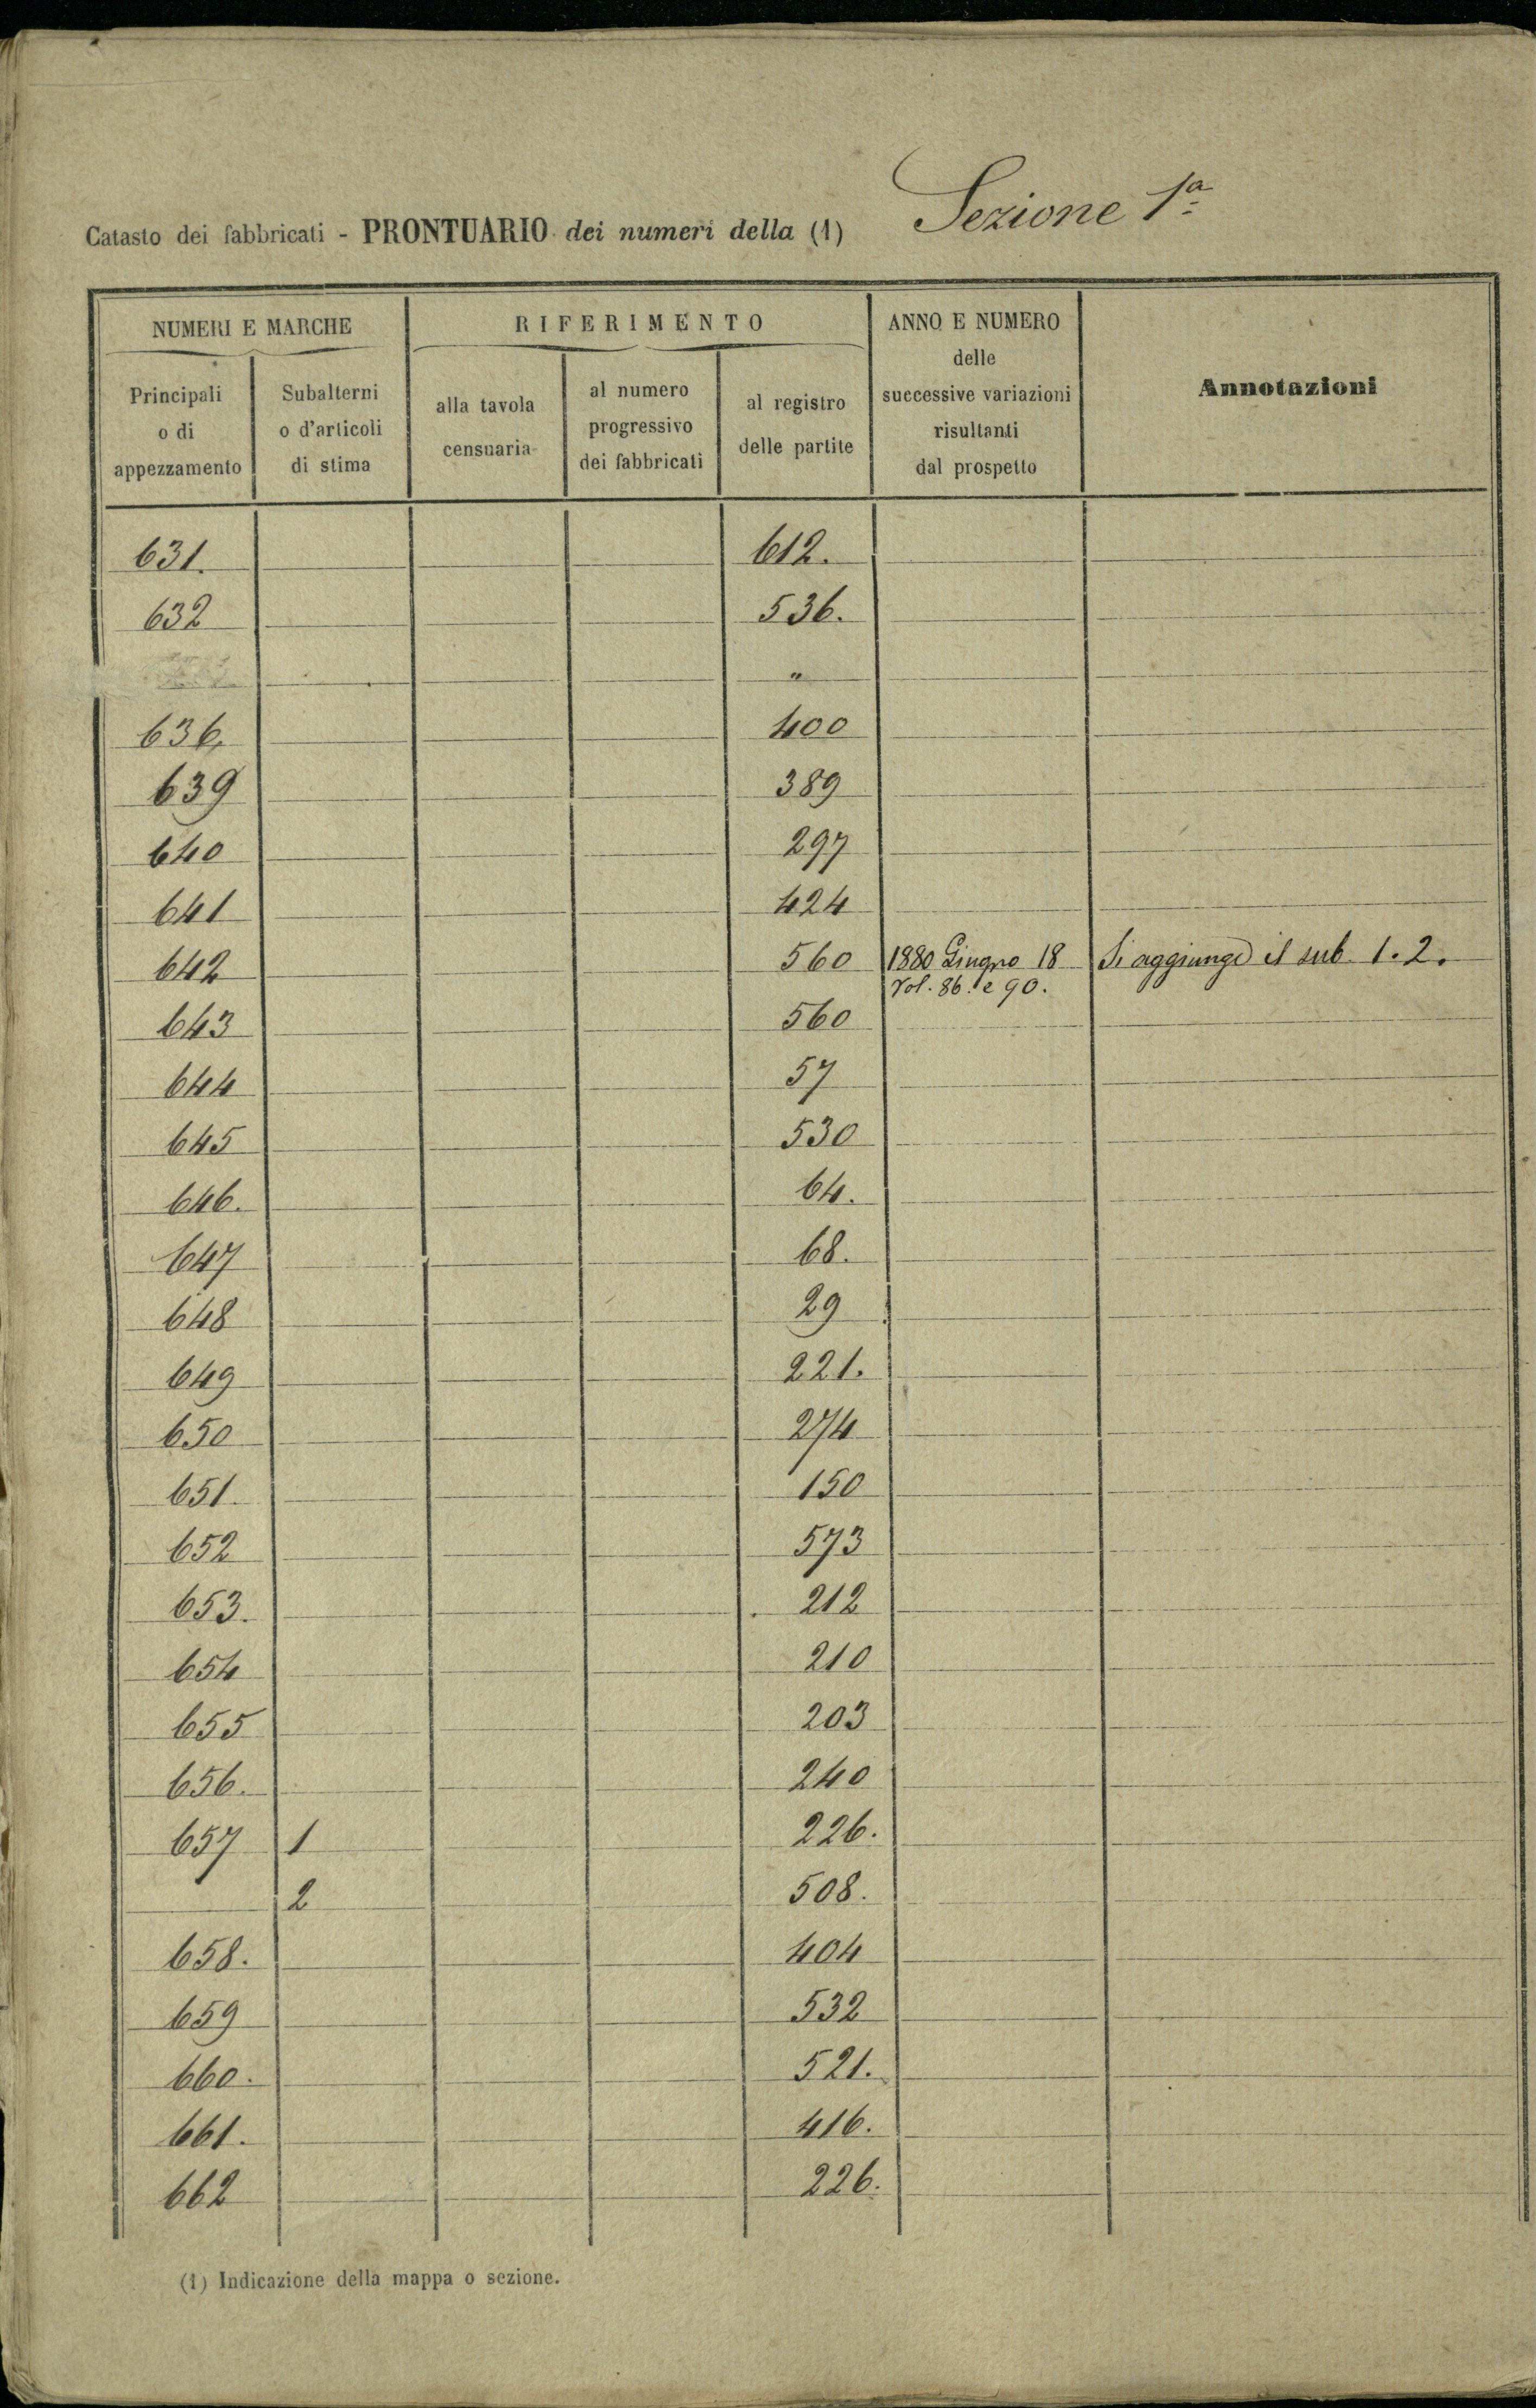 Catasto dei fabbricati - PRONTUARIO dei numeri della (1) Sezione 1ª
NUMERI E MARCHE
Principali o di appezzamento
Subalterni o d'articoli di stima
RIFERIMENTO
alla tavola censuaria
al numero progressivo dei fabbricati
al registro delle partite
ANNO E NUMERO delle successive variazioni risultanti dal prospetto
Annotazioni
631. 612.
632 536.
"
636. 400
639 389
640 297
641 424
642 560 1880 Giugno 18 Si aggiunge il sub. 1. 2.
Vol. 86. e 90.
643 560
644 57
645 530
646. 64.
647 68.
648 29
649 221.
650 274
651. 150
652 573
653. 212
654 210
655 203
656. 240
657 1 226.
2 508.
658. 404
659 532
660. 521.
661. 416.
662 226.
(1) Indicazione della mappa o sezione.